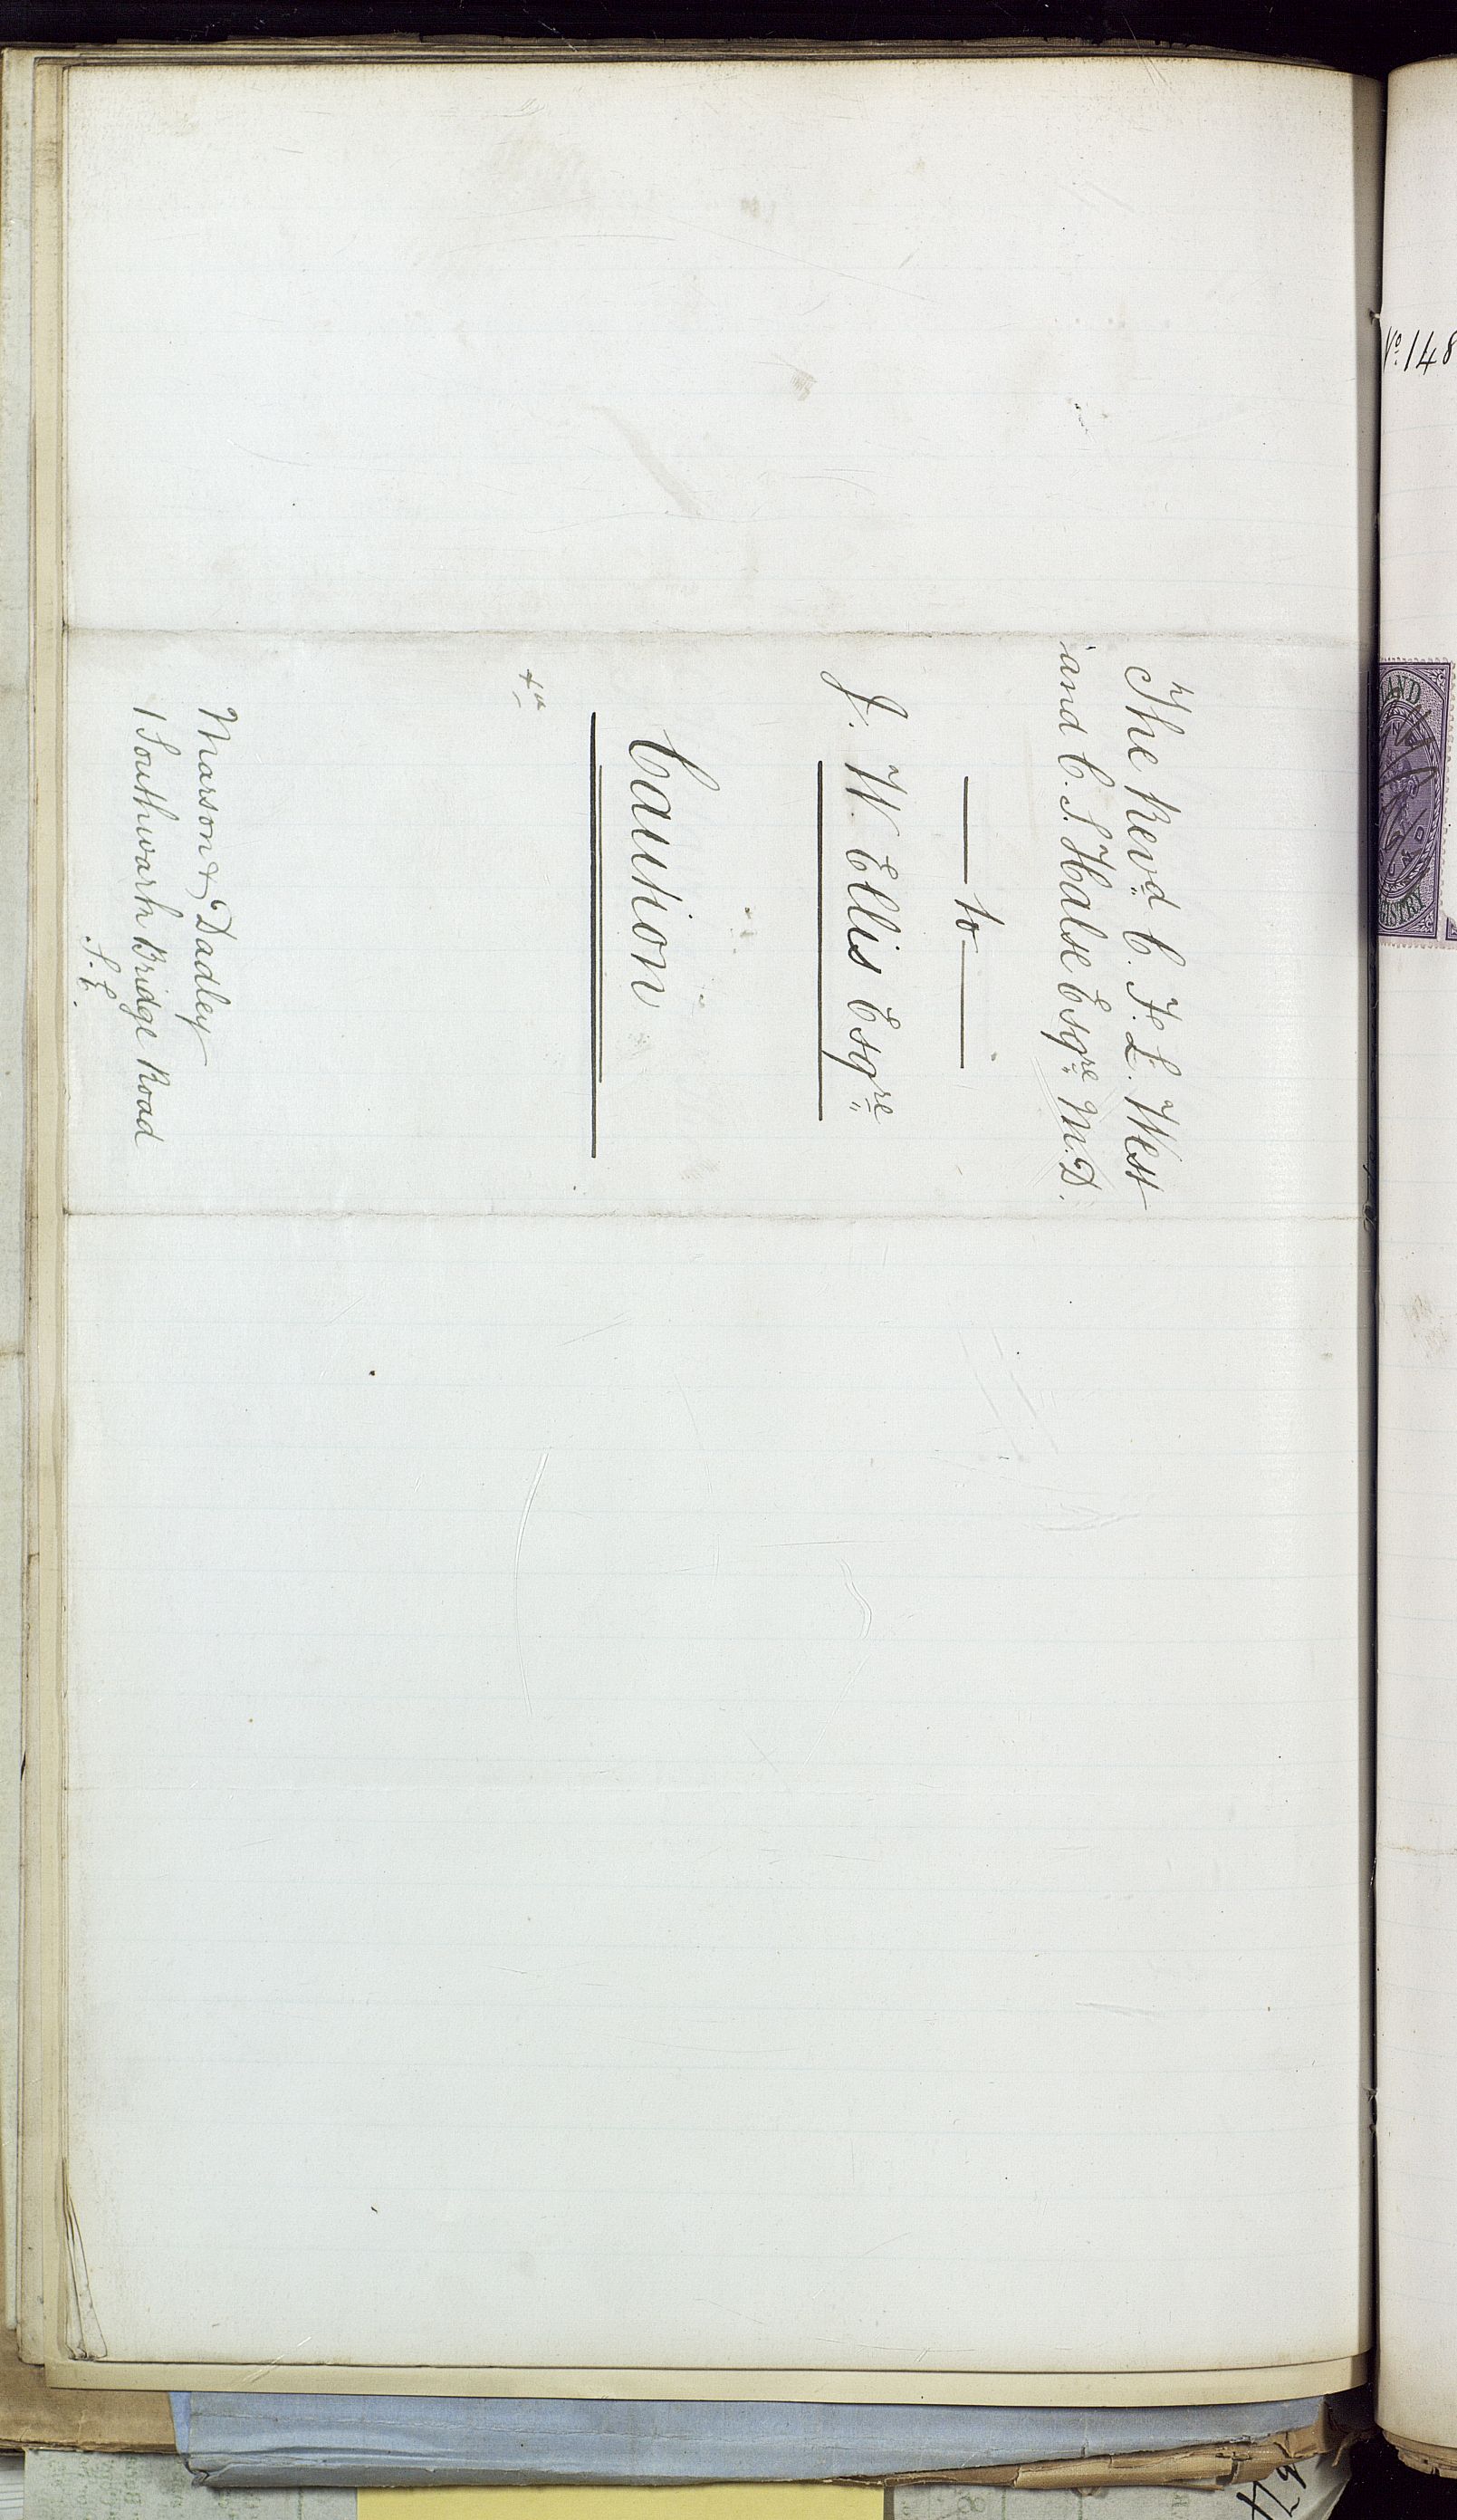 The Revd. C. F. L. West
and C. S. Halse Esqre. M.D.
to
J. W. Ellis Esqre.
Caution
Marson & Dadley
1 Southwark Bridge Road
S. E.
No. 148